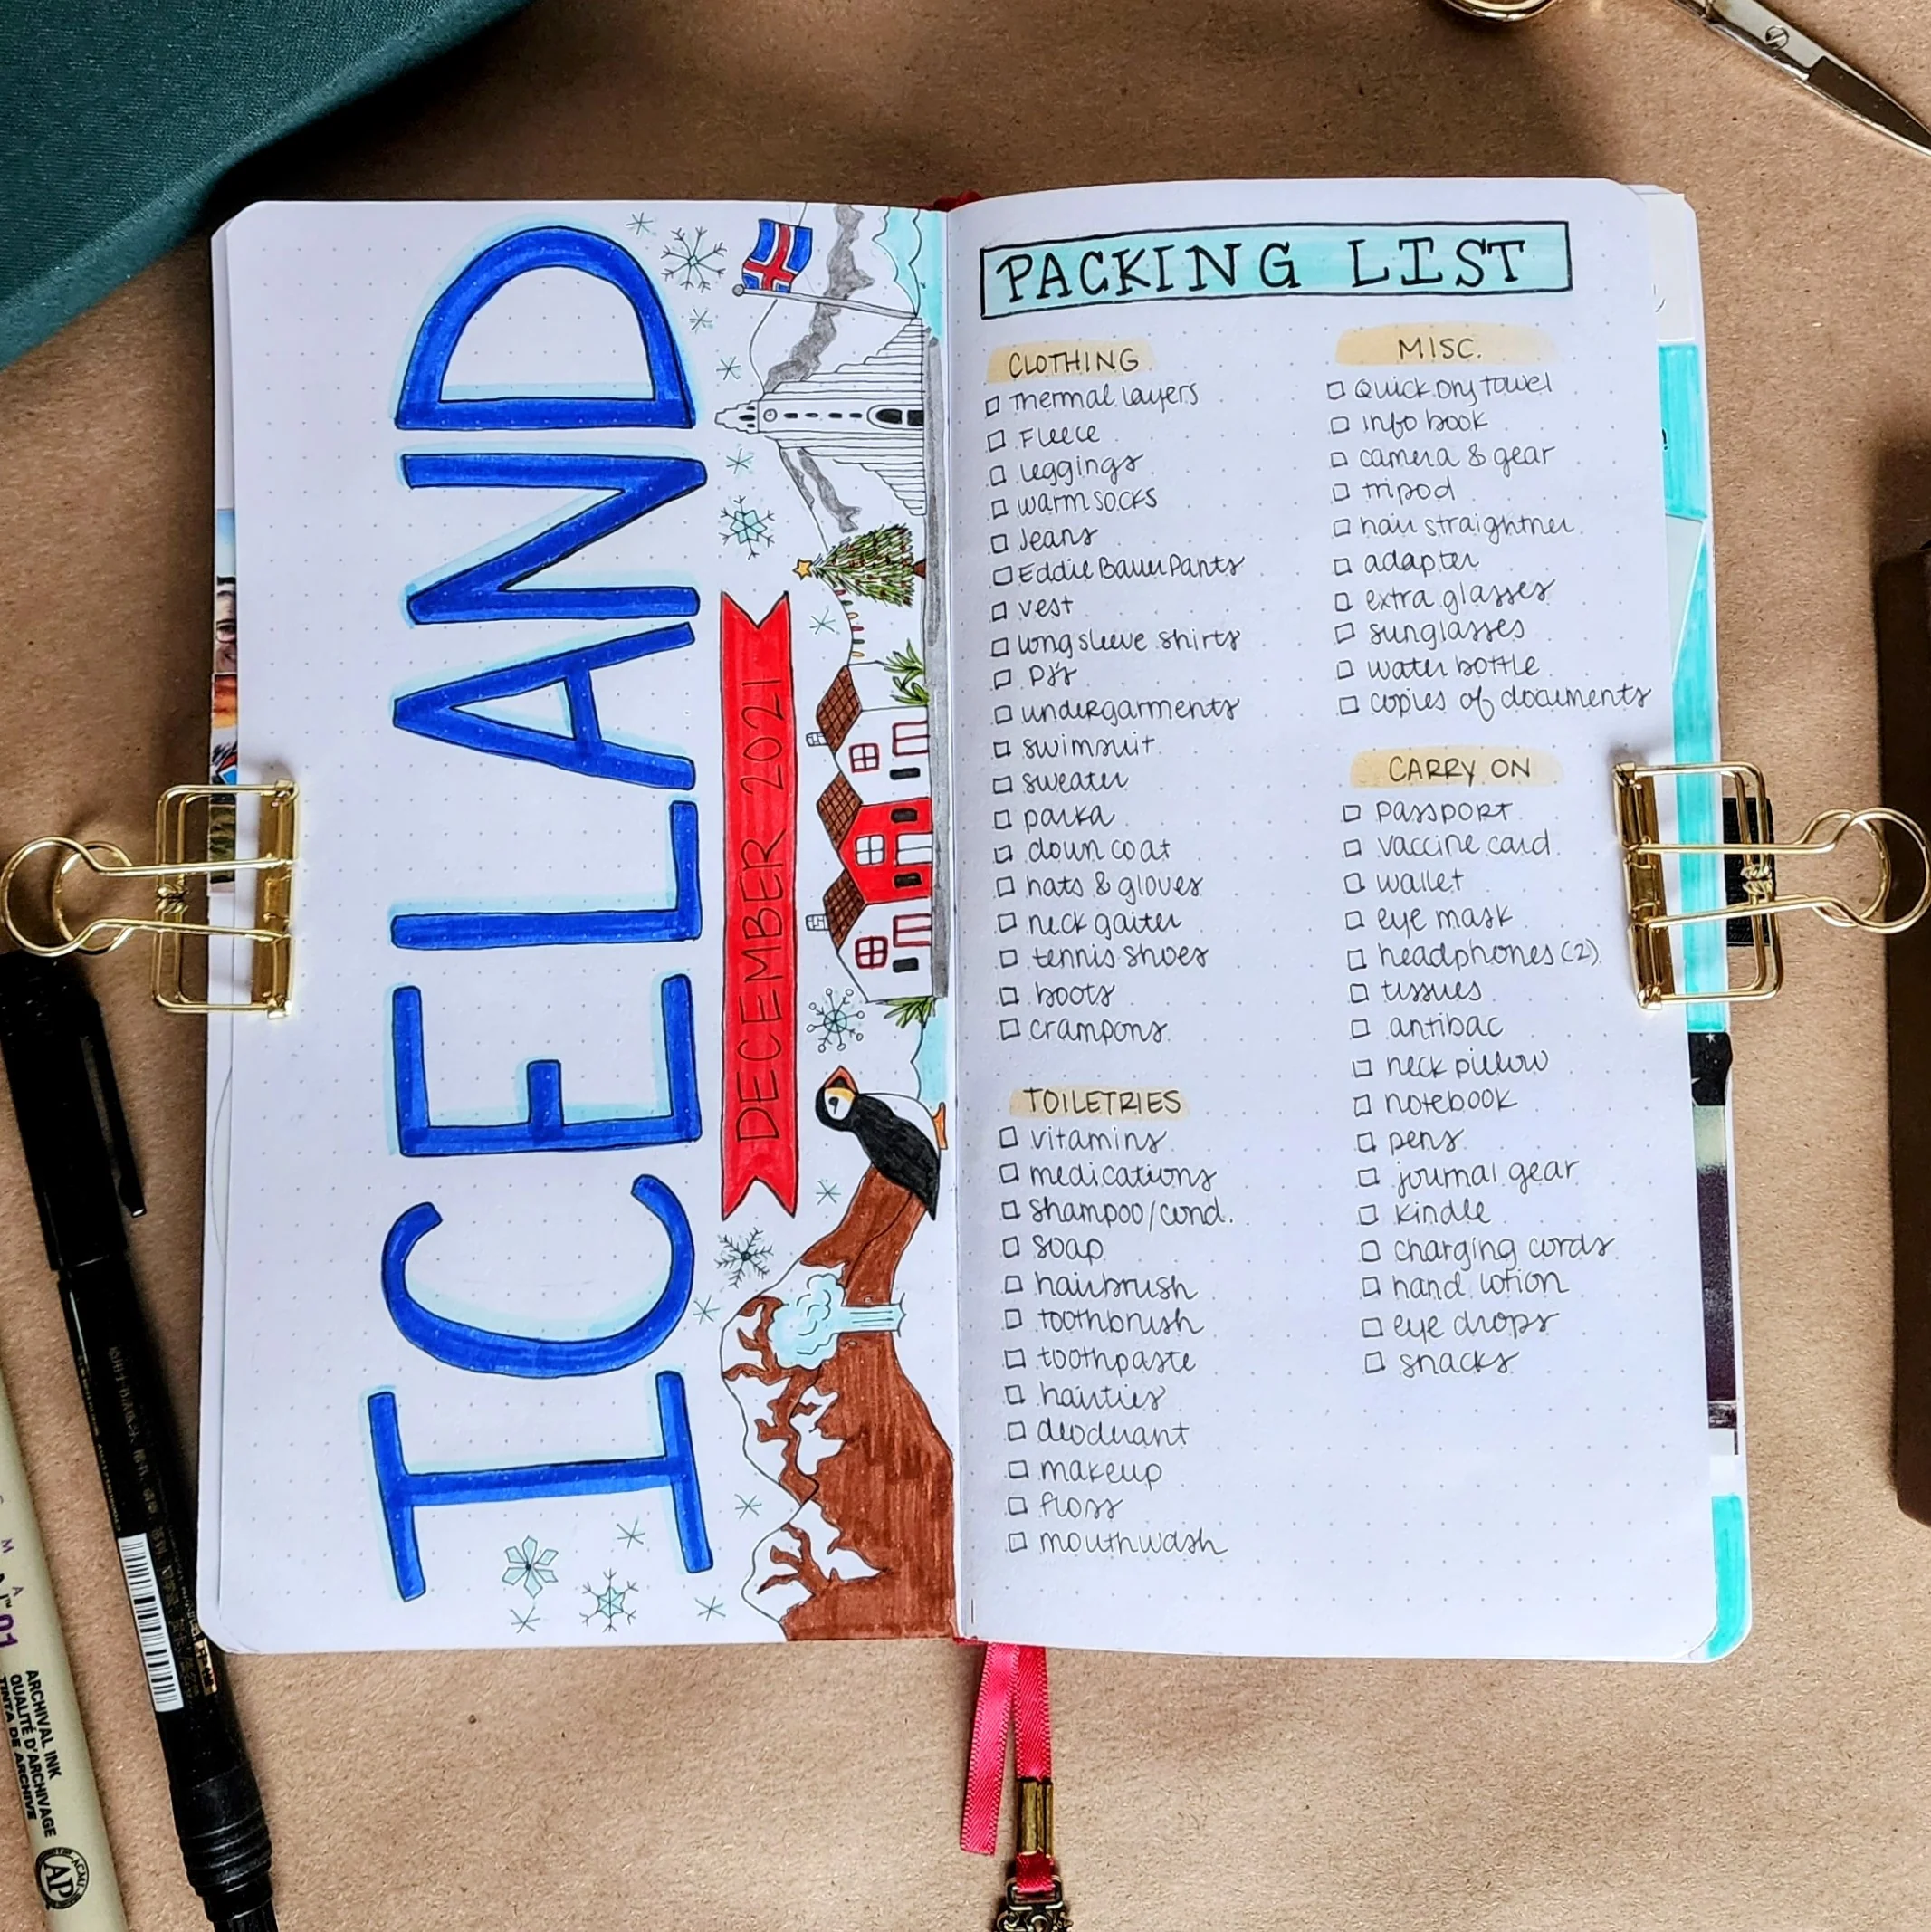 ICELAND
DECEMBER 2021
PACKING LIST
CLOTHING
thermal layers
Fleece
leggings
warm socks
Jeans
Eddie Bauer Pants
vest
long sleeve shirts
PJ's
undergarments
swimsuit
sweater
parka
down coat
hats & gloves
neck gaiter
tennis shoes
boots
crampons
TOILETRIES
vitamins
medications
shampoo/cond.
soap
hairbrush
toothbrush
toothpaste
hairties
deoderant
makeup
floss
mouthwash
MISC.
Quick Dry towel
info book
camera & gear
tripod
hair straightner
adapter
extra glasses
sunglasses
water bottle
copies of documents
CARRY ON
passport
vaccine card
wallet
eye mask
headphones (2)
tissues
antibac
neck pillow
notebook
pens
journal gear
kindle
charging cords
hand lotion
eye drops
snacks
01
ARCHIVAL INK
QUALITÉ D'ARCHIVAGE
TINTA DE ARCHIVE
ACMI
AP